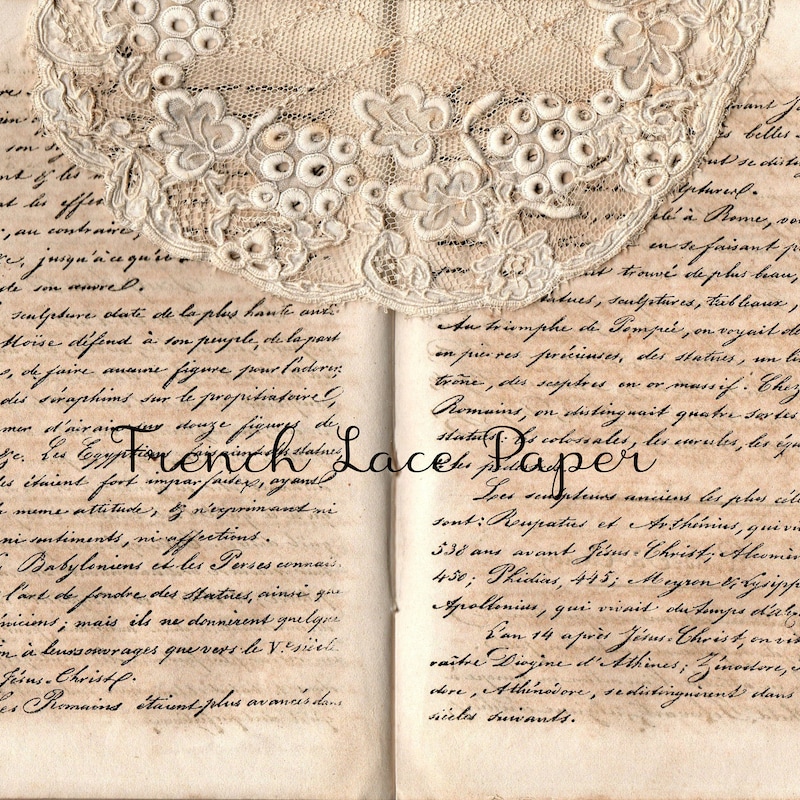 son s
les effet
, au contraire,
, jusqu'à ce qu'il
de son œuvre.
sculpture date de la plus haute anti-
Moïse défend à son peuple, de la part
, de faire aucune figure pour l'adorer;
des séraphims sur le propitiatoire,
mer d'airain douze figures de
Les Egyptiens statues
étaient fort imparfaites, ayant
même attitude, & n'exprimant ni
ni sentiments, ni affections.
Babyloniens et les Perses connais.
l'art de fondre des statues, ainsi que
niciens; mais ils ne donnèrent quelque
n à leurs ouvrages que vers le V.e siècle
Jésus-Christ.
Les Romains étaient plus avancés dans
vant J
s belles
ut se dist
culptures.
à Rome, vo
en se faisant p
ut trouvé de plus beau,
statues, sculptures, tableaux,
Au triomphe de Pompée, on voyait de
en pierres précieuses, des statues, un li
trône, des sceptres en or massif. Chez
Romains, on distinguait quatre sortes
statues: les colossales, les curules, les équ
et les
French Lace Paper
Les sculpteurs anciens les plus célè
sont: Rupatus et Arthénius, qui viv
538 ans avant Jésus-Christ; Alcomèn
450; Phidias, 445; Meyron & Lysipp
Apollonius, qui vivait du temps d'A
L'an 14 après Jésus-Christ, on vit
raître Diogène d'Athènes; Zénodore,
dore, Athénodore, se distinguèrent dans
siècles suivants.